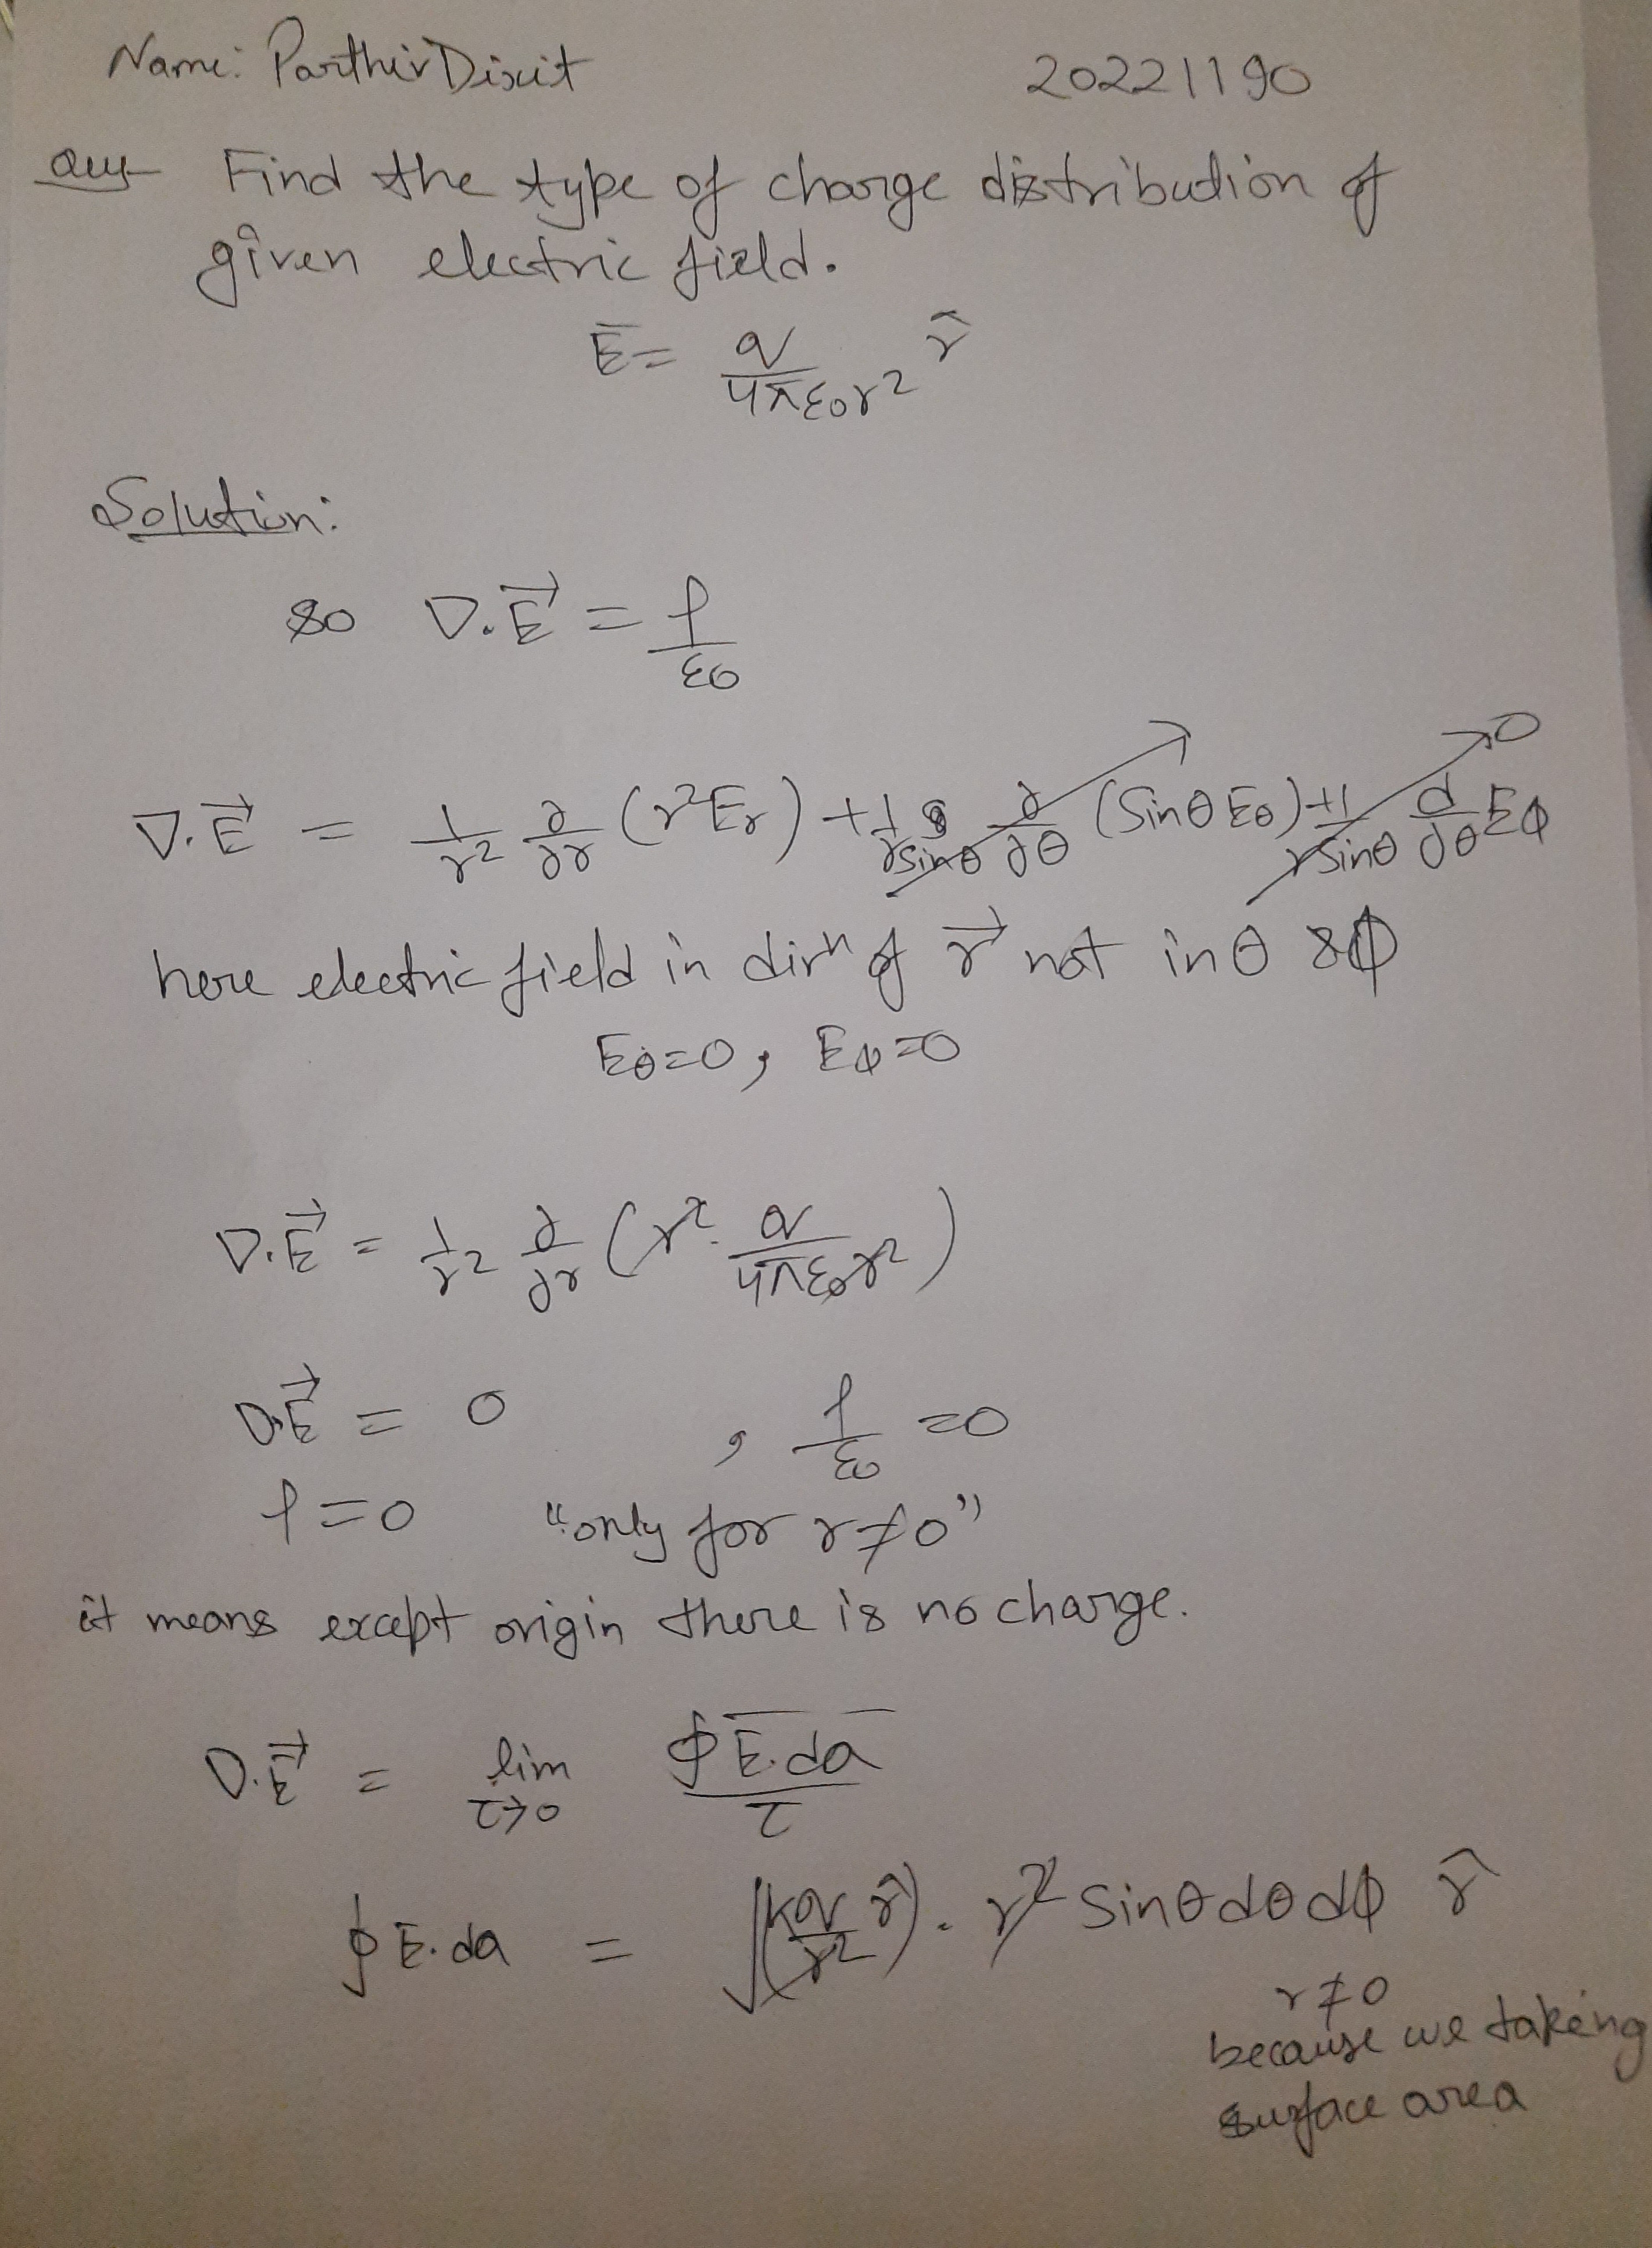 Name: Parthiv Dixit 20221190
Ques Find the type of charge distribution of
given electric field.
E̅ = q/4πε₀r² r̂
Solution:
so ∇.E⃗ = ρ/ε₀
∇.E⃗ = 1/r² ∂/∂r (r²Er) + 1/rsinθ ∂/∂θ (Sinθ Eθ) + 1/rSinθ d/dθ Eϕ → 0
here electric field in dirⁿ of r⃗ not in θ & ϕ
Eθ=0, Eϕ=0
∇.E⃗ = 1/r² ∂/∂r (r². q/4πε₀r²)
∇.E⃗ = 0 , ρ/ε₀ =0
ρ=0 "only for r≠0"
it means except origin there is no charge.
∇.E⃗ = lim τ→0 ∮E̅.da̅/τ
∮E.da = ∫(kq/r² r̂). r² Sinθdθdϕ r̂
r≠0
because we taking
surface area